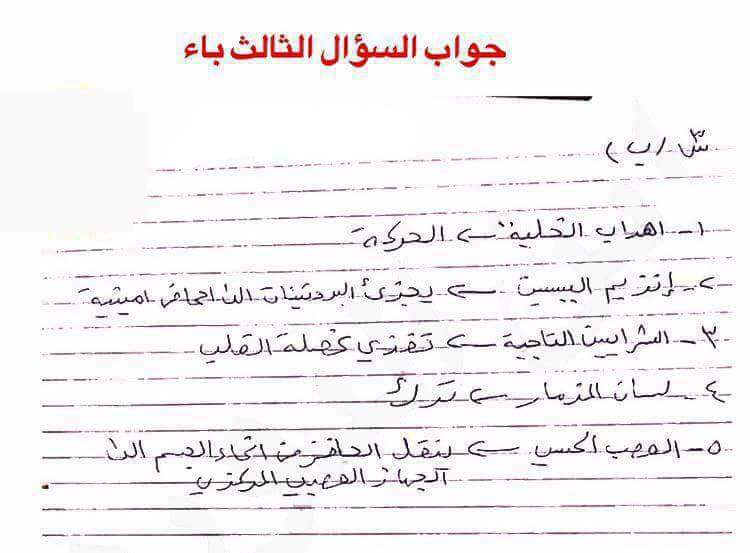 جواب السؤال الثالث باء
س٣ / ب )
١- اهداب الخلية ← الحركة
٢- إنزيم الببسين ← يجزئ البروتينات الى احماض امينية
٣- الشرايين التاجية ← تغذي عضلة القلب
٤- لسان المزمار ← ترك
٥- العصب الحسي ← ينقل الحافز من انحاء الجسم الى
الجهاز العصبي المركزي